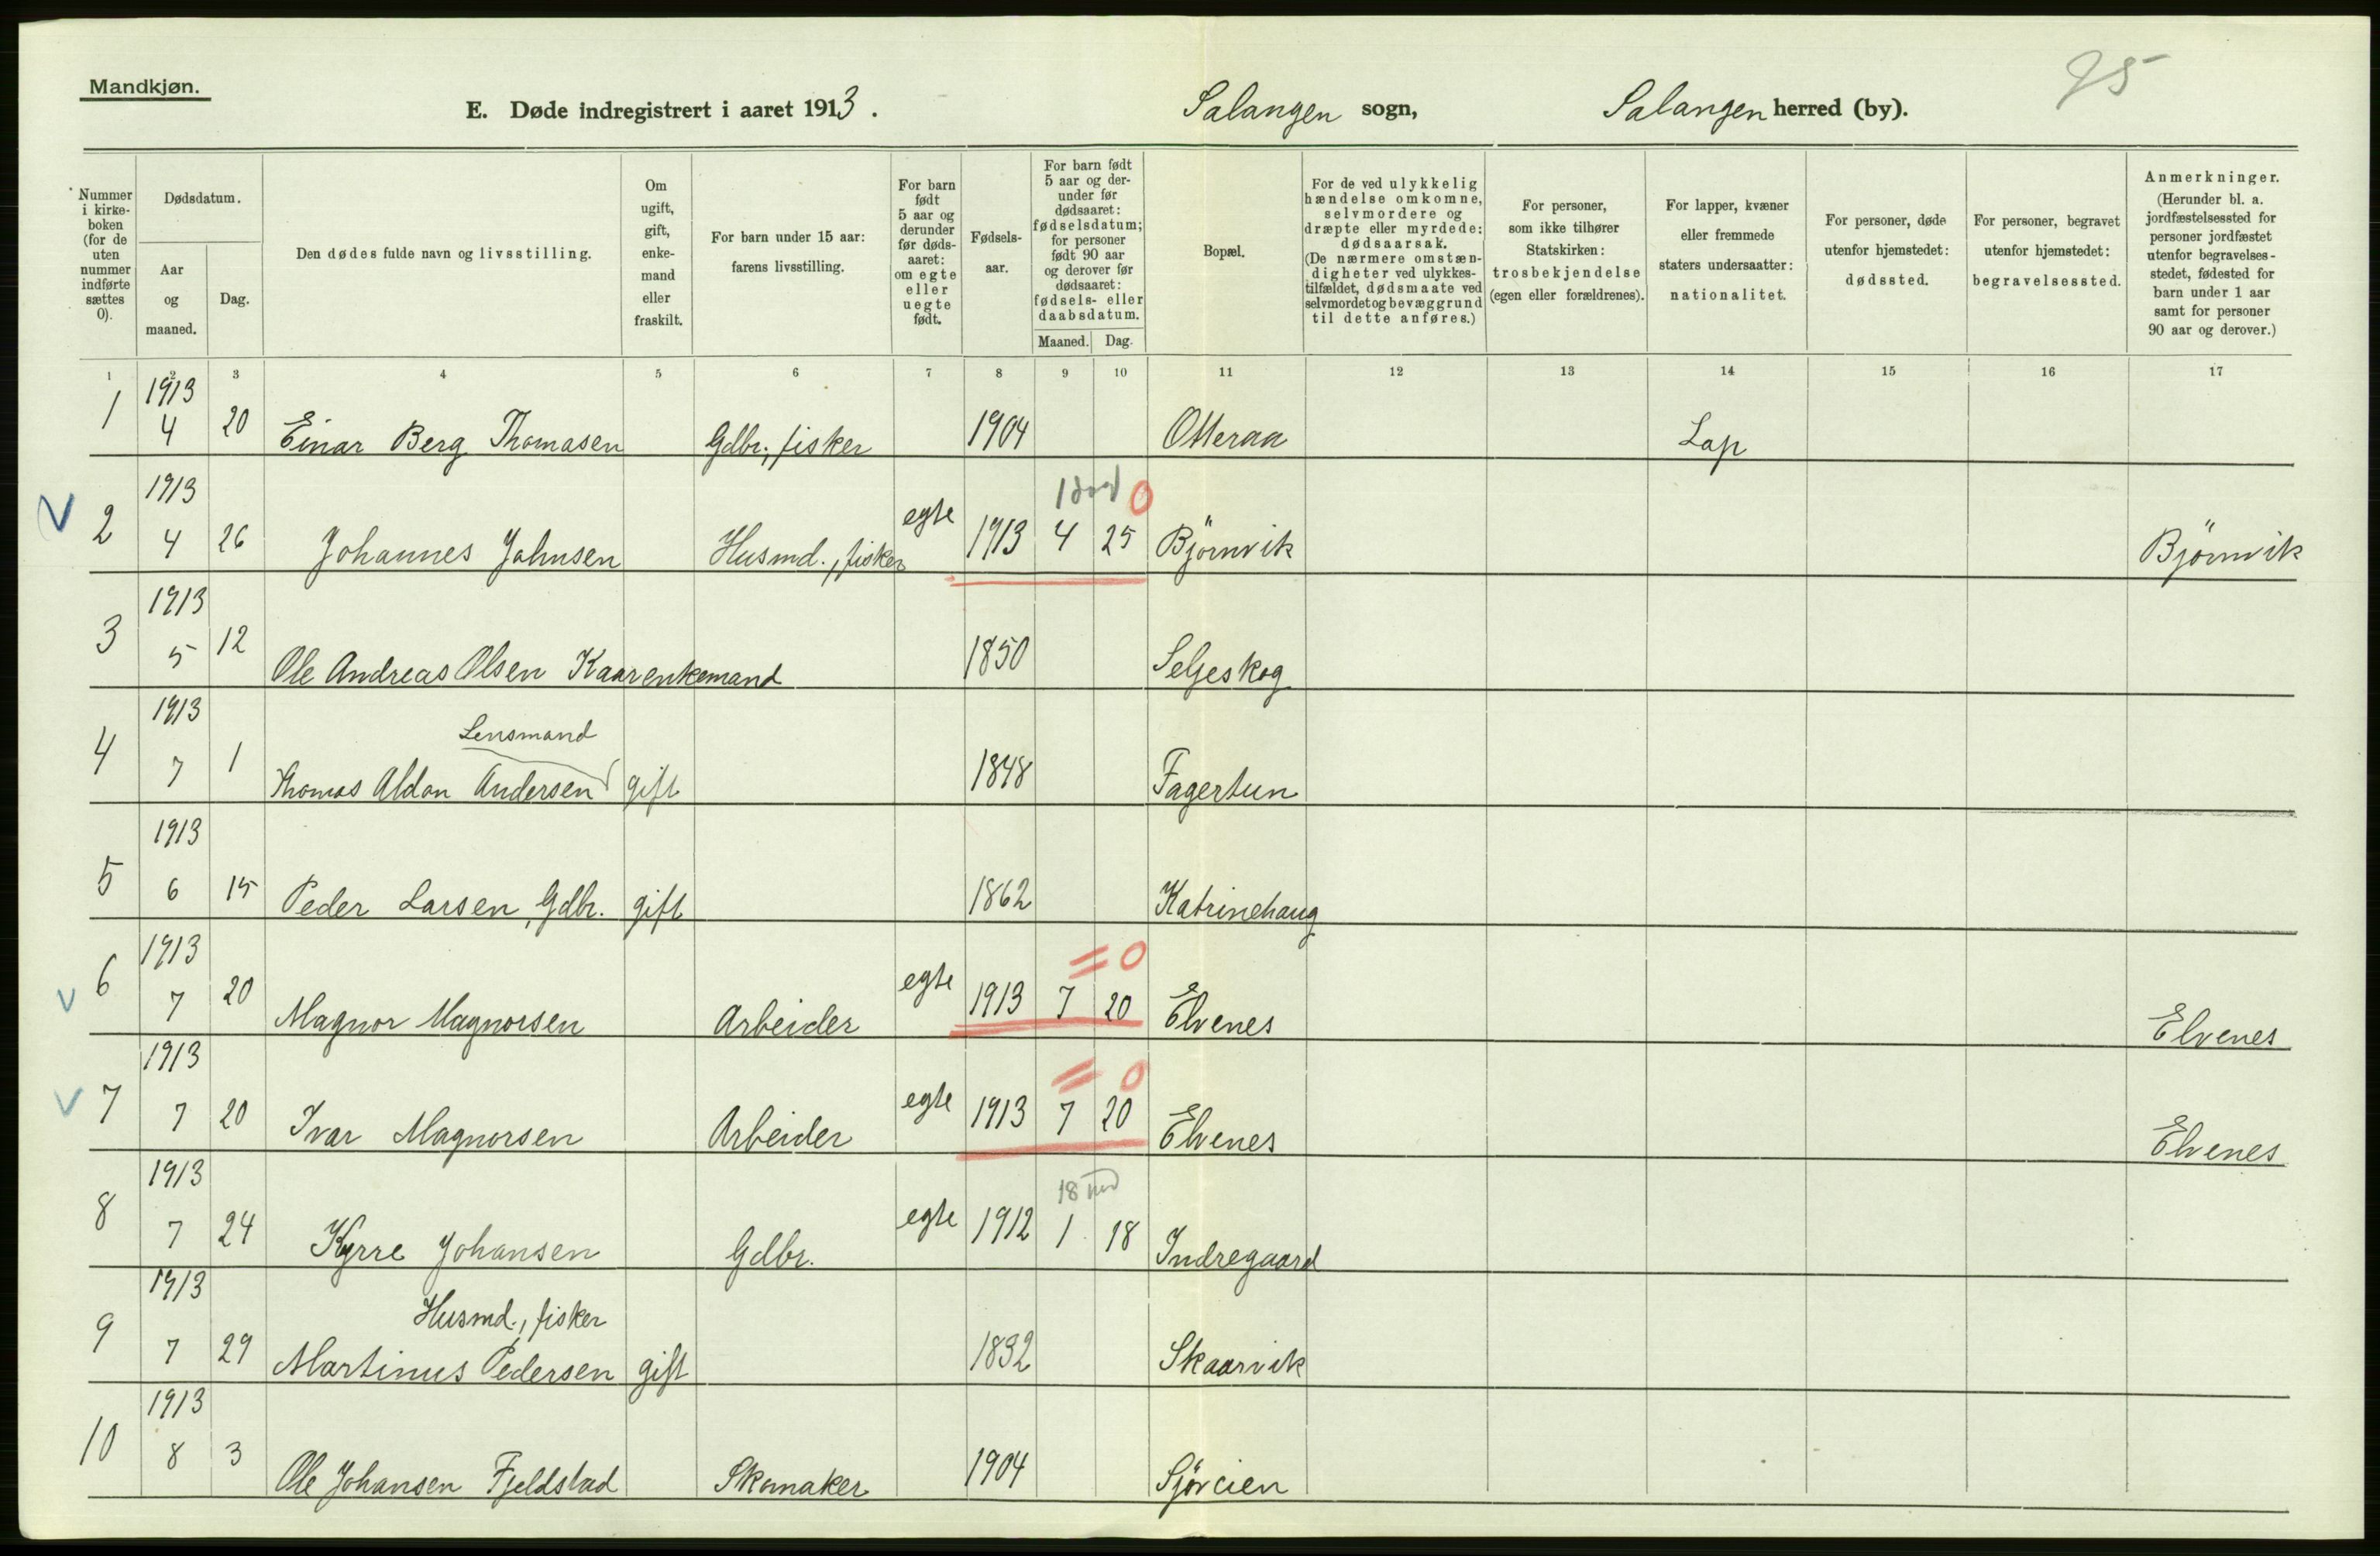 Mandkjøn.
25
E. Døde indregistrert i aaret 1913. Salangen sogn, Salangen herred (by).
Nummer i kirke- boken (for de uten nummer indførte sættes 0).
Dødsdatum.
Aar og maaned.
Dag.
Den dødes fulde navn og livsstilling.
Om ugift, gift, enke- mand eller fraskilt.
For barn under 15 aar: farens livsstilling.
For barn født 5 aar og derunder før døds- aaret: om egte eller uegte født.
Fødsels- aar.
For barn født 5 aar og der- under før dødsaaret: fødselsdatum; for personer født 90 aar og derover før dødsaaret: fødsels- eller daabsdatum.
Maaned. Dag.
Bopæl.
For de ved ulykkelig hændelse omkomne, selvmordere og dræpte eller myrdede: dødsaarsak. (De nærmere omstæn- digheter ved ulykkes- tilfældet, dødsmaate ved selvmordet og bevæggrund til dette anføres.)
For personer, som ikke tilhører Statskirken: trosbekjendelse (egen eller forældrenes).
For lapper, kvæner eller fremmede staters undersaatter: nationalitet.
For personer, døde utenfor hjemstedet: dødssted.
For personer, begravet utenfor hjemstedet: begravelsessted.
Anmerkninger. (Herunder bl. a. jordfæstelsessted for personer jordfæstet utenfor begravelses- stedet, fødested for barn under 1 aar samt for personer 90 aar og derover.)
1 2 3 4 5 6 7 8 9 10 11 12 13 14 15 16 17
1 1913 4 20 Einar Berg Thomasen Gdbr., fisker 1904 Otteraa Lap
1 dag 0
2 1913 4 26 Johannes Johnsen Husmd., fisker egte 1913 4 25 Björnvik Björnvik
3 1913 5 12 Ole Andreas Olsen Kaar enkemand 1850 Seljeskog
Lensmand
4 1913 7 1 Thomas Aldon Andersen gift 1848 Fagertun
5 1913 6 15 Peder Larsen, Gdbr. gift 1862 Katrinehaug
= 0
6 1913 7 20 Magnor Magnorsen Arbeider egte 1913 7 20 Elvenes Elvenes
= 0
7 1913 7 20 Ivar Magnorsen Arbeider egte 1913 7 20 Elvenes Elvenes
18 md
8 1913 7 24 Kyrre Johansen Gdbr. egte 1912 1 18 Indregaard
Husmd., fisker
9 1913 7 29 Martinus Pedersen gift 1832 Skaarvik
10 1913 8 3 Ole Johansen Fjeldstad Skomaker 1904 Sjöveien